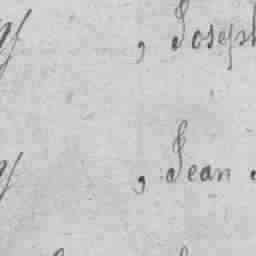 y , Joseph
y , Jean